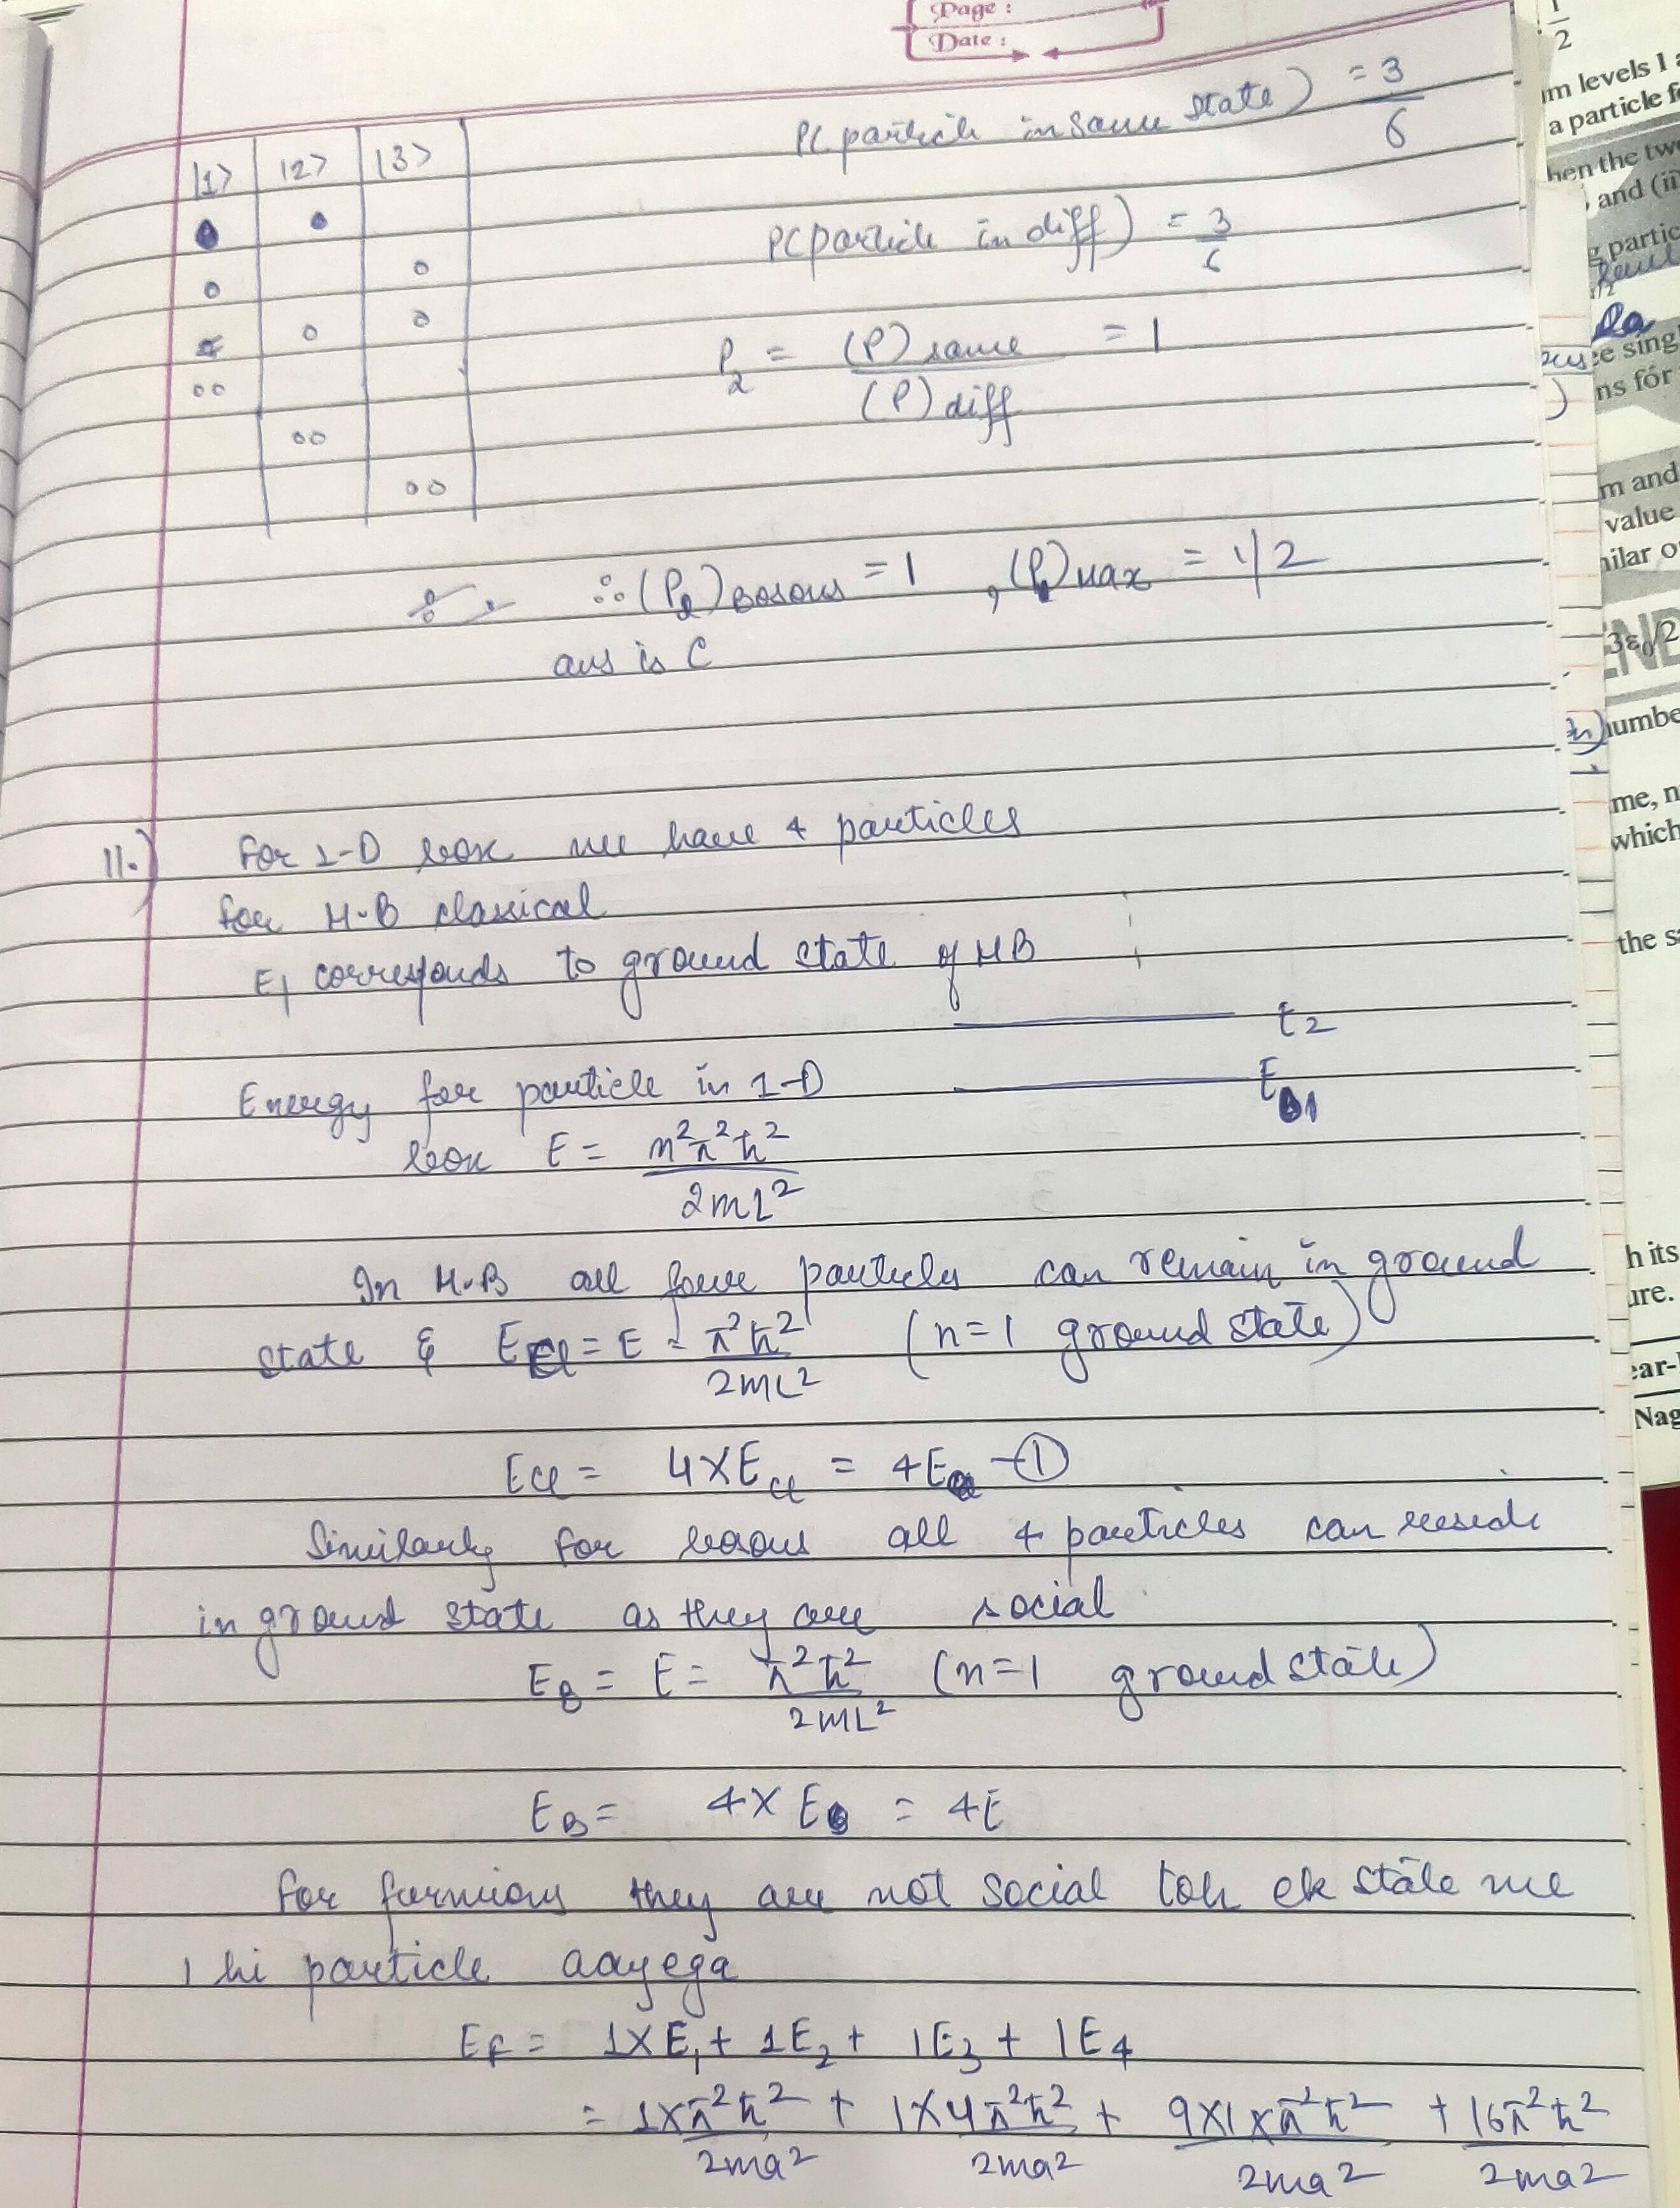 Page :
Date :
|1> |2> |3>
P(particle in same state) = 3/6
P(particle in diff) = 3/6
P₂ = (P) same / (P) diff = 1
∴ (P₂) Bosons = 1 , (P) Max = 1/2
ans is C
11.) for 1-D box we have 4 particles
for M-B classical
E1 corresponds to ground state of MB
E2
Energy for particle in 1-D
E1
box E = n²π²ħ² / 2mL²
In M-B all four particles can remain in ground
state & Ecl = E = π²ħ² / 2mL² (n=1 ground state)
Ecl = 4XEcl = 4E —①
Similarly for bosons all 4 particles can reside
in ground state as they are social
EB = E = π²ħ² / 2mL² (n=1 ground state)
EB = 4X E = 4E
for fermions they are not social toh ek state me
1 hi particle aayega
EF = 1XE₁ + 1E₂ + 1E₃ + 1E₄
= 1xπ²ħ² / 2ma² + 1X4π²ħ² / 2ma² + 9X1xπ²ħ² / 2ma² + 16π²ħ² / 2ma²
1/2
m levels 1
a particle
hen the tw
and (ii
partic
e sing
ns for
m and
value
nilar o
3ε₀/2
END
numbe
me, n
which
the s
h its
ure.
ear-
Nag